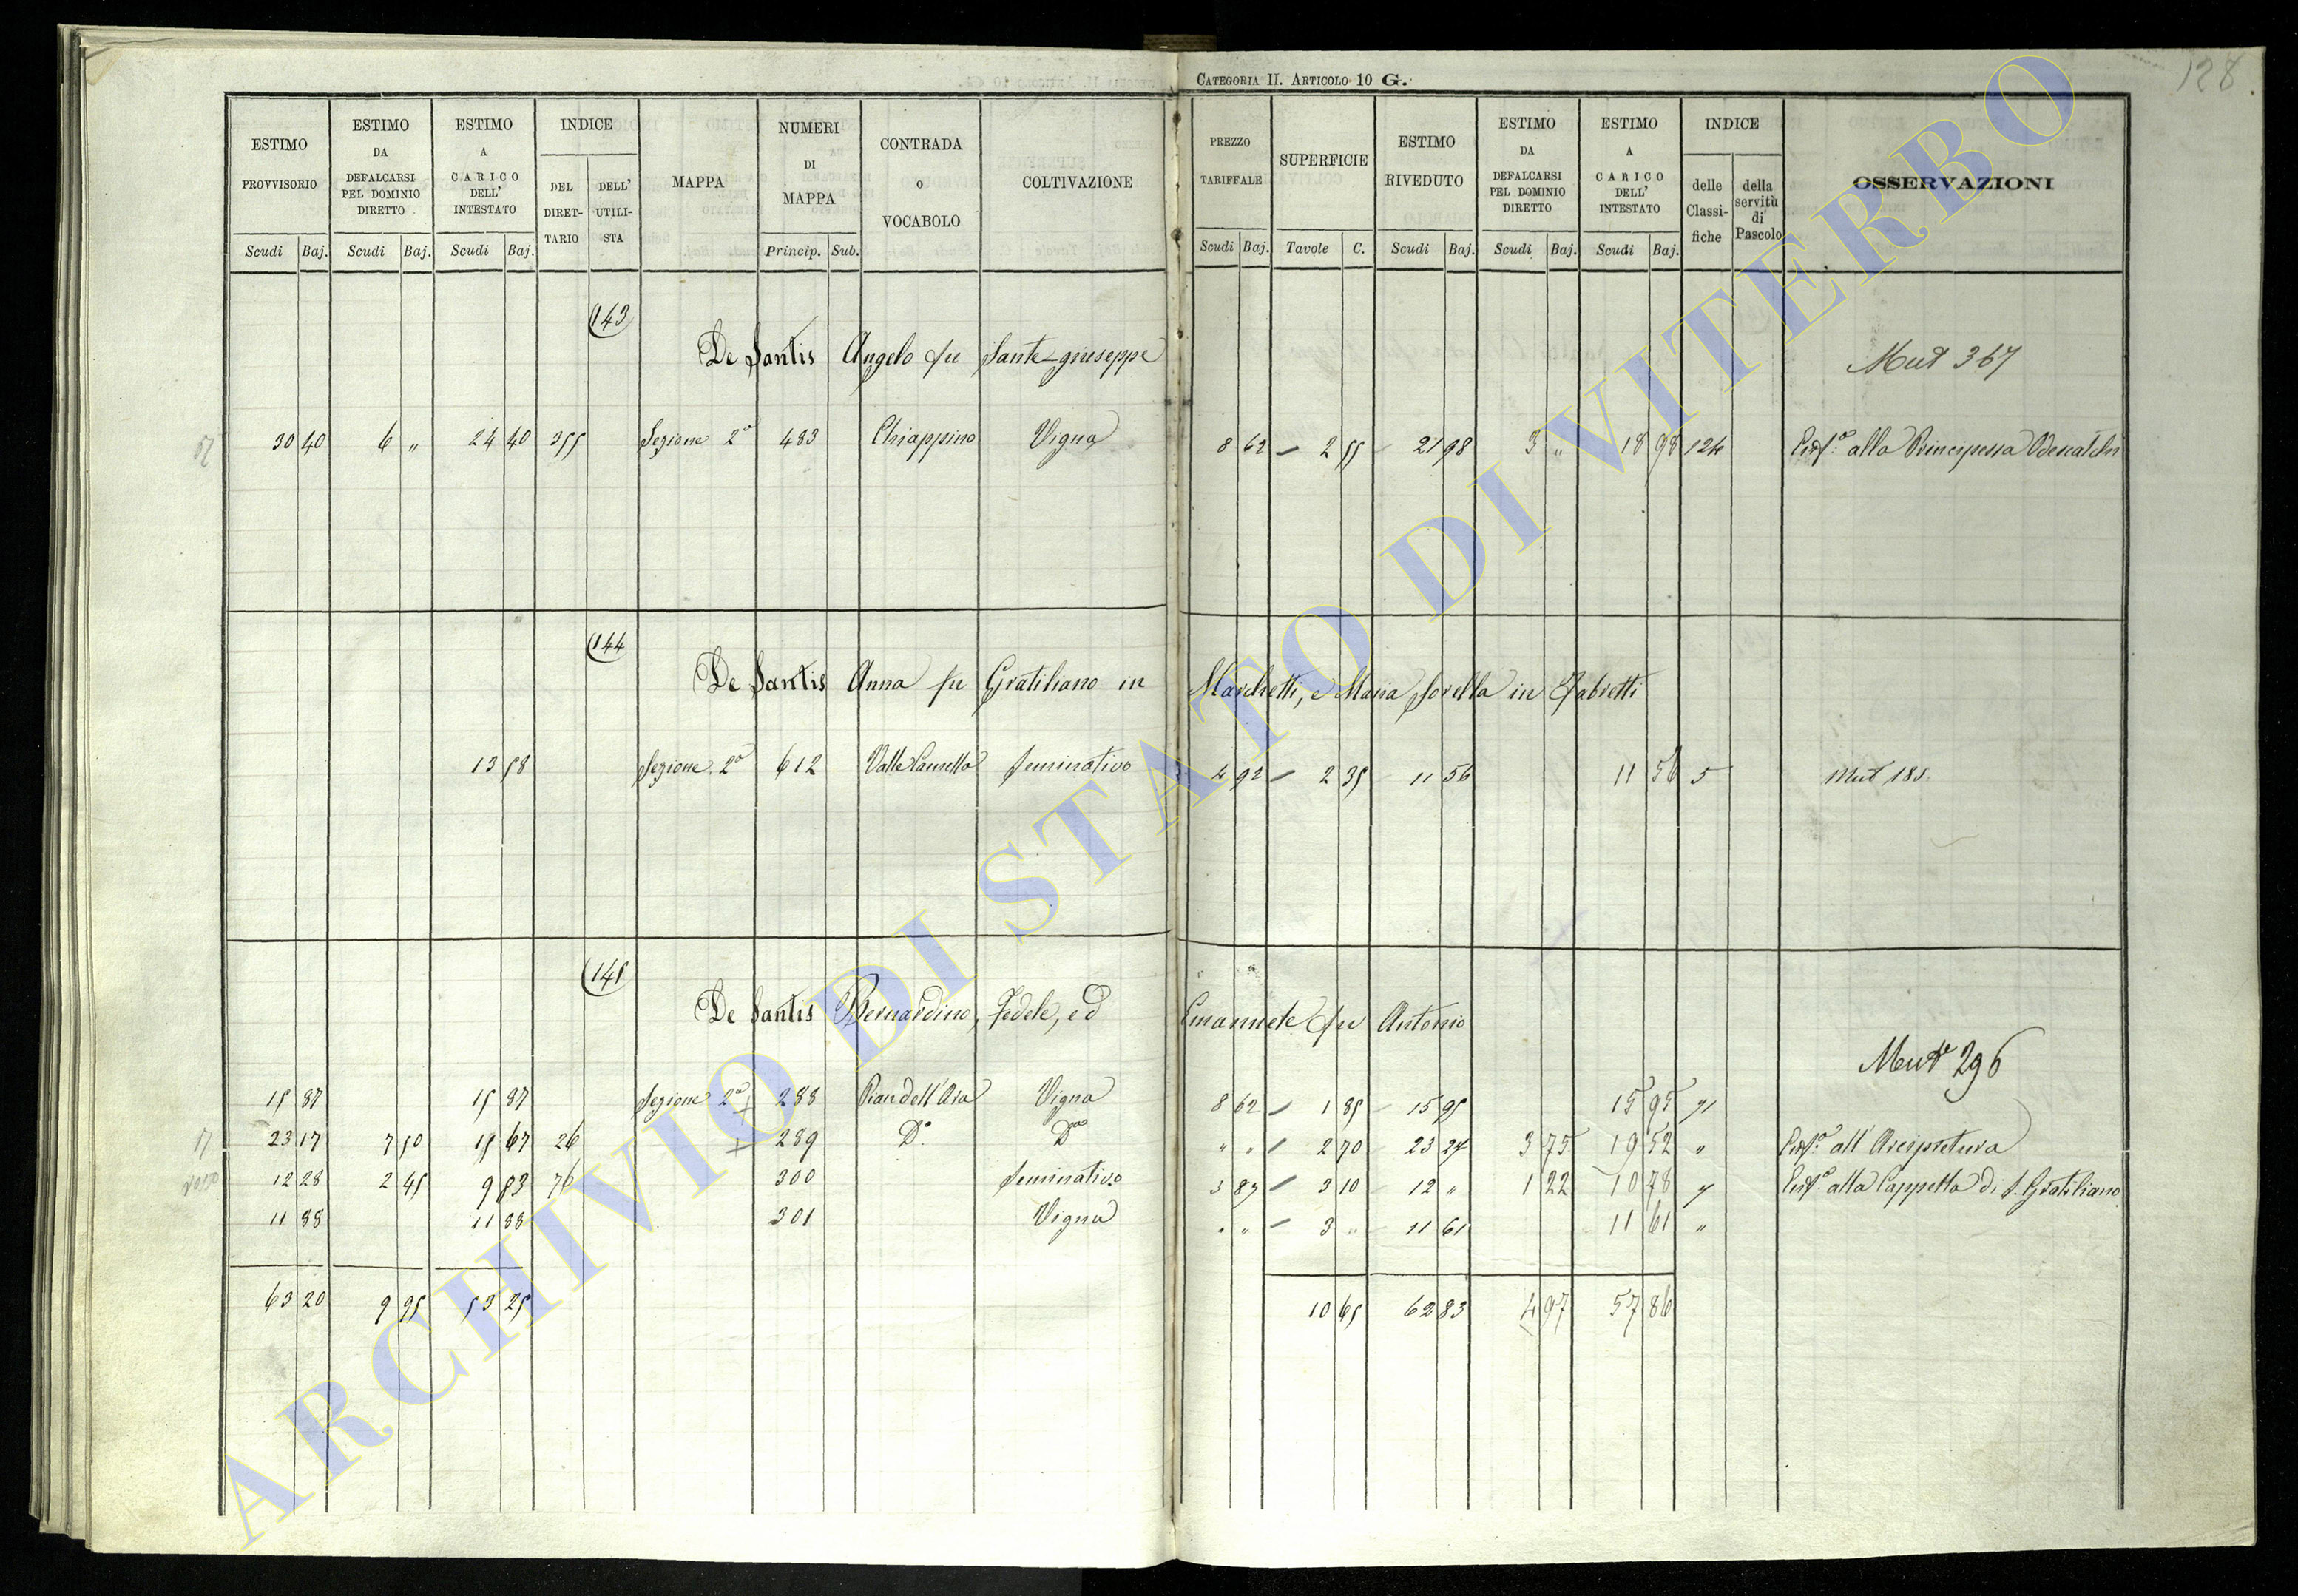 CATEGORIA II. ARTICOLO 10 G.
128.
ESTIMO PROVVISORIO Scudi Baj.
ESTIMO DA DEFALCARSI PEL DOMINIO DIRETTO Scudi Baj.
ESTIMO A CARICO DELL' INTESTATO Scudi Baj.
INDICE DEL DIRET-TARIO DELL' UTILI-STA
MAPPA
NUMERI DI MAPPA Princip. Sub.
CONTRADA O VOCABOLO
COLTIVAZIONE
PREZZO TARIFFALE Scudi Baj.
SUPERFICIE Tavole C.
ESTIMO RIVEDUTO Scudi Baj.
ESTIMO DA DEFALCARSI PEL DOMINIO DIRETTO Scudi Baj.
ESTIMO A CARICO DELL' INTESTATO Scudi Baj.
INDICE delle Classi-fiche della servitù di Pascolo
OSSERVAZIONI
143
De Santis Angelo fu Sante-giuseppe
Mut 367
30 40 6 " 24 40 355 Sezione 2a 483 Chiappino Vigna 8 62 2 55 21 98 3 " 18 98 124 alla Principessa Odescalchi
144
De Santis Anna fu Gratiliano in Marchetti, e Maria sorella in Fabretti
13 58 Sezione 2a 612 Seminativo 4 92 2 35 11 56 11 56 5 Mut 185
145
De Santis Bernardino, Fedele, ed Emanuele fu Antonio
Mut 296
15 87 15 87 Sezione 2a 288 Pian dell'Ara Vigna 8 62 1 85 15 95 15 95 71
23 17 7 50 15 67 26 289 Do Do " " 2 70 23 27 3 75 19 52 " all'Arcipretura
12 28 2 45 9 83 76 300 Seminativo 3 87 3 10 12 " 1 22 10 78 7 alla Cappella di S. Gratiliano
11 88 11 88 301 Vigna " " 3 " 11 61 11 61 "
63 20 9 95 53 25 10 65 62 83 4 97 57 86
ARCHIVIO DI STATO DI VITERBO